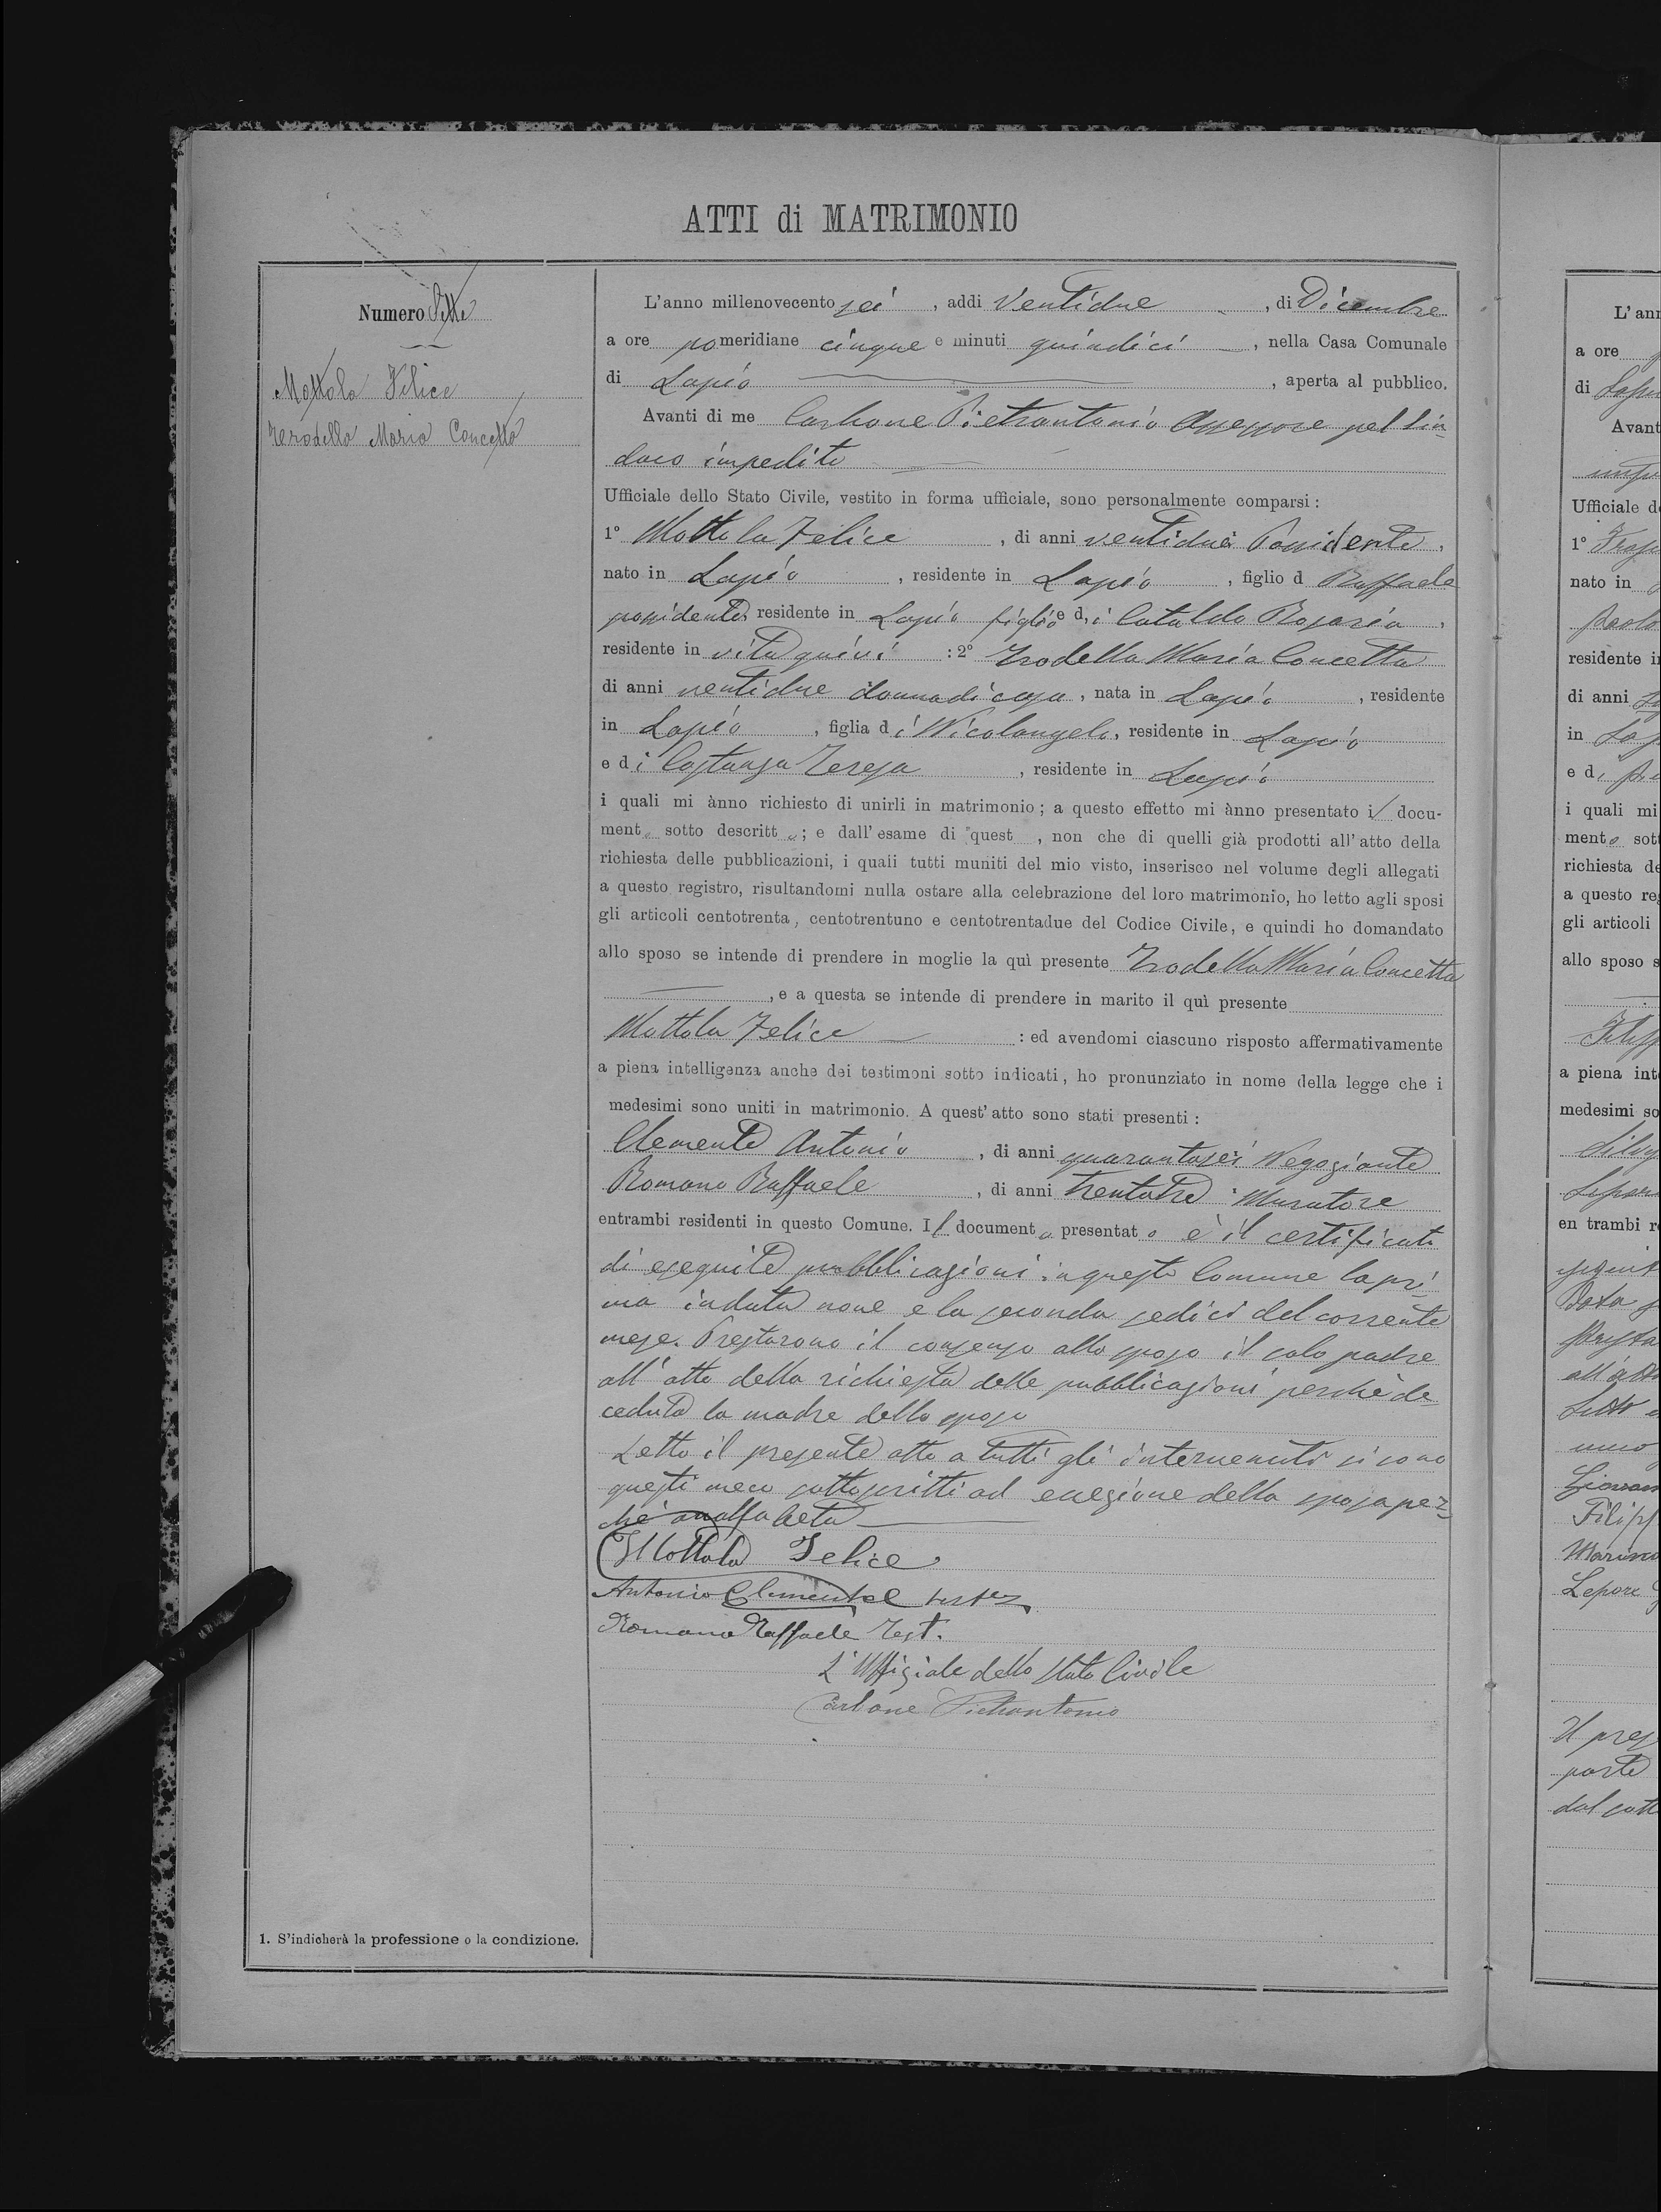 ATTI di MATRIMONIO
Numero Sette
Mottola Felice
Zerodella Maria Concetta
L'anno millenovecento sei, addi ventidue, di Dicembre
a ore pomeridiane cinque e minuti quindici, nella Casa Comunale
di Lapio, aperta al pubblico.
Avanti di me Carbone Pietrantonio Assessore pel Sin-
daco impedito
Ufficiale dello Stato Civile, vestito in forma ufficiale, sono personalmente comparsi:
1° Mottola Felice, di anni ventidue Possidente,
nato in Lapio, residente in Lapio, figlio d Raffaele
possidente residente in Lapio figlio e di Cataldo Rosaria,
residente in vita quivi : 2° Maria Concetta
di anni ventidue donna di casa, nata in Lapio, residente
in Lapio, figlia di Nicolangelo, residente in Lapio
e di Costanza Teresa, residente in Lapio
i quali mi ànno richiesto di unirli in matrimonio; a questo effetto mi ànno presentato i/ docu-
mento sotto descritto; e dall'esame di quest , non che di quelli già prodotti all'atto della
richiesta delle pubblicazioni, i quaii tutti muniti del mio visto, inserisco nel volume degli allegati
a questo registro, risultandomi nulla ostare alla celebrazione del loro matrimonio, ho letto agli sposi
gli articoli centotrenta, centotrentuno e centotrentadue del Codice Civile, e quindi ho domandato
allo sposo se intende di prendere in moglie la quì presente Maria Concetta
, e a questa se intende di prendere in marito il quì presente
Mottola Felice : ed avendomi ciascuno risposto affermativamente
a piena intelligenza anche dei testimoni sotto indicati, ho pronunziato in nome della legge che i
medesimi sono uniti in matrimonio. A quest'atto sono stati presenti:
Clemente Antonio, di anni quarantasei Negoziante
Romano Raffaele, di anni trentatre Muratore
entrambi residenti in questo Comune. Il documento presentato è il certificato
di eseguite pubblicazioni in questo Comune la pri
ma in data nove e la seconda sedici del corrente
mese. Prestarono il consenso allo sposo il solo padre
all'atto della richiesta delle pubblicazioni perchè de
ceduta la madre dello sposo
Letto il presente atto a tutti gli intervenuti si sono
questi meco sottoscritti ad eccezione della sposa per-
chè analfabeta
Mottola Felice
Antonio Clemente test.
Romano Raffaele Test.
L'Uffiziale dello Stato Civile
Carbone Pietrantonio
1. S'indicherà la professione o la condizione.
L'ann
a ore
di
Avant
Ufficiale d
1°
nato in
Paolo
residente i
di anni
in
e di
i quali mi
mento sott
richiesta de
a questo reg
gli articoli
allo sposo s
a piena int
medesimi so
en trambi r
Data
all'atto
Giovan
Filipp
Marino
Lepore
Il pres
parte
dal sott